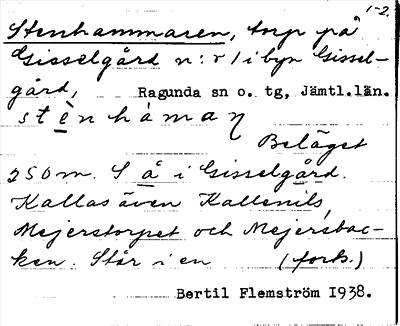 1-2.
Stenhammaren, torp på
Gisselgård n:r 1 i byn Gissel-
gård, Ragunda sn o. tg, Jämtl.län.
stènhàmaṇ
Beläget
250 m. S å i Gisselgård.
Kallas även Kallenils,
Mejerstorpet och Mejersbac-
ken. Står i en (forts.)
Bertil Flemström 1938.